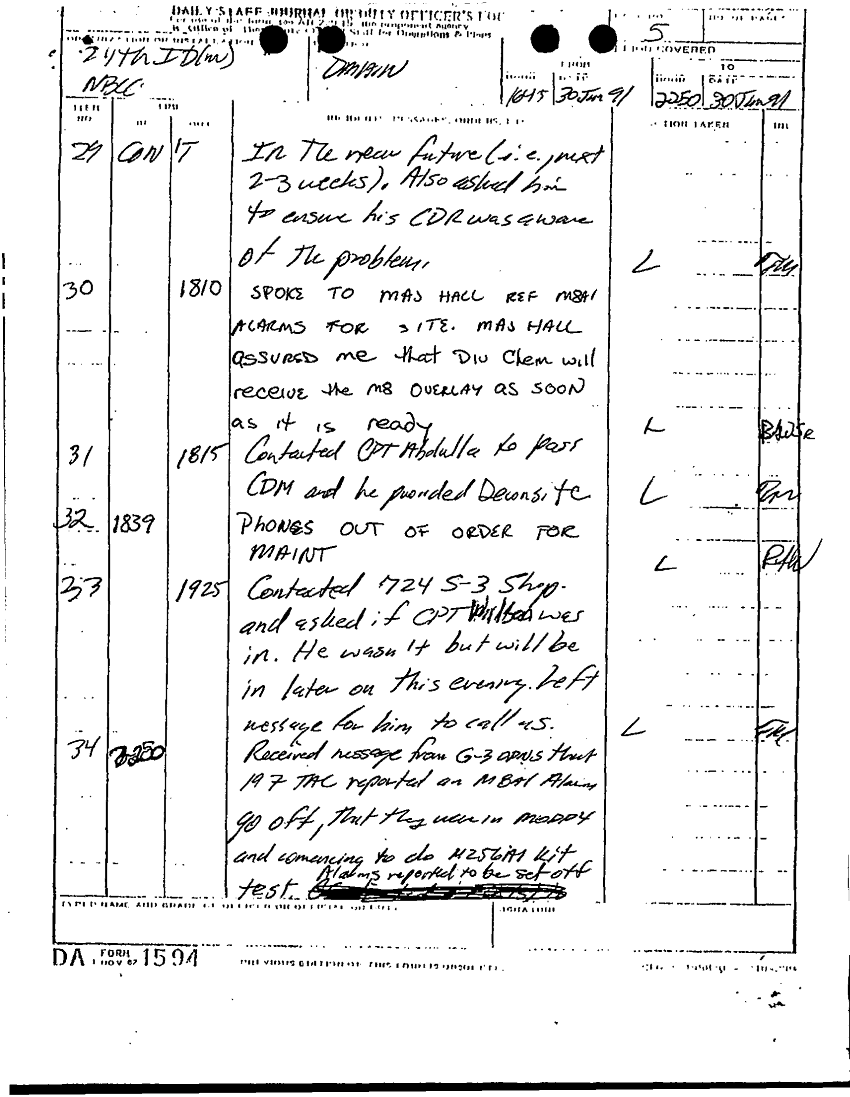 DAILY STAFF JOURNAL OR DUTY OFFICER'S LOG
5
24th ID(M)
NBCC
FROM
TO
HOUR DATE HOUR DATE
1645 30 Jan 91 2250 30 Jan 91
ITEM NO TIME IN OUT INCIDENTS, MESSAGES, ORDERS, ETC. ACTION TAKEN INL
29 CON'T In the near future (i.e., next
2-3 weeks). Also asked him
to ensure his CDR was aware
of the problem. L
30 1810 SPOKE TO MAJ HALL REF M8A1
ALARMS FOR SITE. MAJ HALL
ASSURED me that Div Chem will
receive the M8 OVERLAY AS SOON
as it is ready L
31 1815 Contacted CPT Abdulla to pass
CDM and he provided Deconsite L
32 1839 PHONES OUT OF ORDER FOR
MAINT L
33 1925 Contacted 724 S-3 Shop.
and asked if CPT was
in. He wasn't but will be
in later on this evening. Left
message for him to call us. L
34 2250 Received message from G-3 OPNS that
197 TAC reported an M8A1 Alarm
go off, that they were in MOPP4
and comencing to do M256A1 Kit
test. Alarms reported to be set off
TYPED NAME AND GRADE OF OFFICER OR OFFICIAL ON DUTY SIGNATURE
DA FORM 1 NOV 62 1594 PREVIOUS EDITION OF THIS FORM IS OBSOLETE.